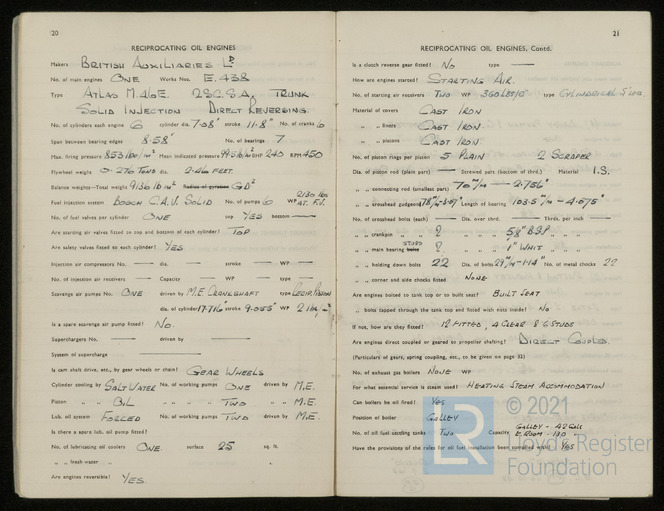 20
RECIPROCATING OIL ENGINES
Makers BRITISH AUXILIARIES LD
No. of main engines ONE Works Nos. E.438
Type ATLAS M.46E. 2S.C.S.A. TRUNK
SOLID INJECTION DIRECT REVERSING.
No. of cylinders each engine 6 cylinder dia. 7·08" stroke 11·8" No. of cranks 6
Span between bearing edges 8·58" No. of bearings 7
Max. firing pressure 853 lbs/in² Mean indicated pressure BHP 240 RPM 450
Flywheel weight 0·276 TONS dia. 2·46 FEET.
Balance weights—Total weight 9136 lb in² Radius of gyration GD²
Fuel injection system BOSCH C.A.V. SOLID No. of pumps 6 WP 2130 lbs AT. F.V.
No. of fuel valves per cylinder ONE top YES bottom —
Are starting air valves fitted to top and bottom of each cylinder? TOP
Are safety valves fitted to each cylinder? YES
Injection air compressors No. — dia. — stroke — WP —
No. of injection air receivers — Capacity — WP — type —
Scavenge air pumps No. ONE driven by M.E. CRANKSHAFT type RECIP. PISTON
dia. of cylinder 17·716 stroke 9·055" WP 2 lbs/in²
Is a spare scavenge air pump fitted? No.
Superchargers No. — driven by —
System of supercharge —
Is cam shaft drive, etc., by gear wheels or chain? GEAR WHEELS
Cylinder cooling by SALT WATER No. of working pumps ONE driven by M.E.
Piston „ „ OIL „ „ „ „ TWO „ „ M.E.
Lub. oil system FORCED No. of working pumps TWO driven by M.E.
Is there a spare lub. oil pump fitted?
No. of lubricating oil coolers ONE. surface 25 sq. ft.
„ „ fresh water „ „ „
Are engines reversible? YES
21
RECIPROCATING OIL ENGINES, Contd.
Is a clutch reverse gear fitted? No type —
How are engines started? STARTING AIR.
No. of starting air receivers TWO WP 360 LBS/□" type CYLINDRICAL
Material of covers CAST IRON
„ „ liners CAST IRON.
„ „ pistons CAST IRON.
No. of piston rings per piston 5 PLAIN 2 SCRAPER
Dia. of piston rod (plain part) — Screwed part (bottom of thrd.) Material I.S.
„ „ connecting rod (smallest part) 70 m/m — 2·756"
„ „ crosshead gudgeons Length of bearing — 4·075"
No. of crosshead bolts (each) — Dia. over thrd. — Thrds. per inch —
„ „ crankpin „ 2 „ „ 5/8" B.S.P „ „
„ „ main bearing STUDS bolts 2 „ „ 1" WHIT „ „
„ „ holding down bolts 22 Dia. of bolts 29 m/m - 1·14" No. of metal chocks 22
„ „ corner and side chocks fitted NONE
Are engines bolted to tank top or to built seat? BUILT SEAT
„ bolts tapped through the tank top and fitted with nuts inside? No
If not, how are they fitted? 12 FITTED, 4 CLEAR & 6 STUDS
Are engines direct coupled or geared to propeller shafting? DIRECT COUPLED.
(Particulars of gears, spring coupling, etc., to be given on page 32)
No. of exhaust gas boilers NONE WP
For what essential service is steam used? HEATING STEAM ACCOMMODATION
Can boilers be oil fired? YES
Position of boiler GALLEY
No. of oil fuel settling tanks TWO Capacity GALLEY - 42 Gall E. ROOM - 130 "
Have the provisions of the rules for oil fuel installation been complied with? YES
© 2021
LR
Lloyd's Register
Foundation